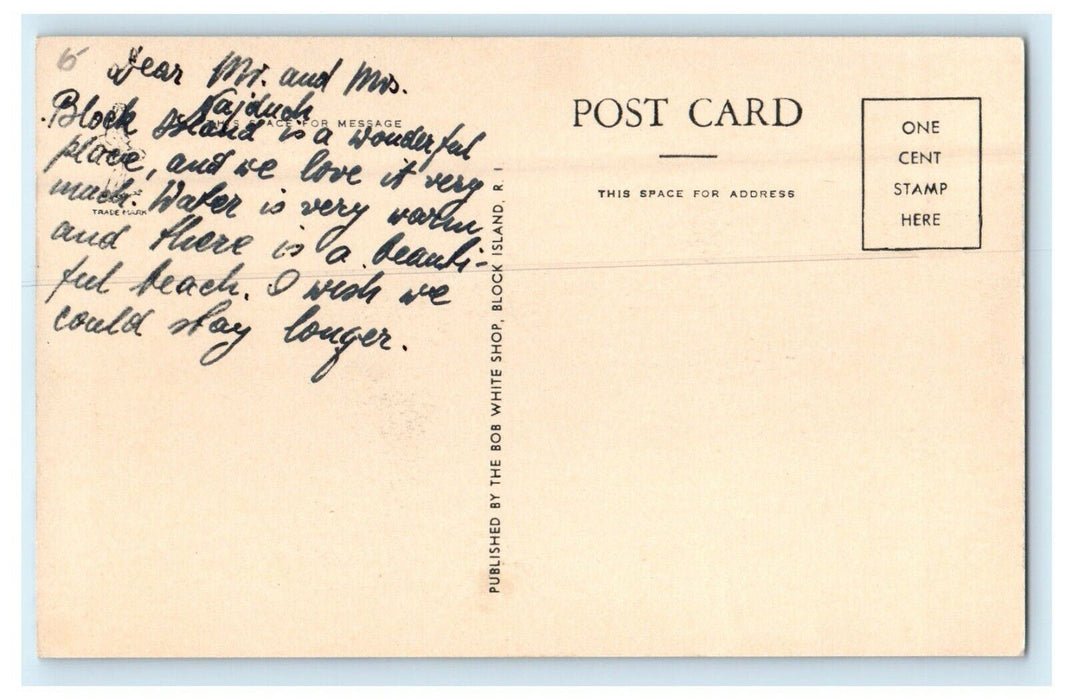 6
Dear Mr. and Mrs.
Kajduch
THIS SPACE FOR MESSAGE
Block Island is a wonderful
place, and we love it very
much. Water is very warm
TRADE MARK
and there is a beauti-
ful beach. I wish we
could stay longer.
PUBLISHED BY THE BOB WHITE SHOP, BLOCK ISLAND, R. I.
POST CARD
THIS SPACE FOR ADDRESS
ONE
CENT
STAMP
HERE